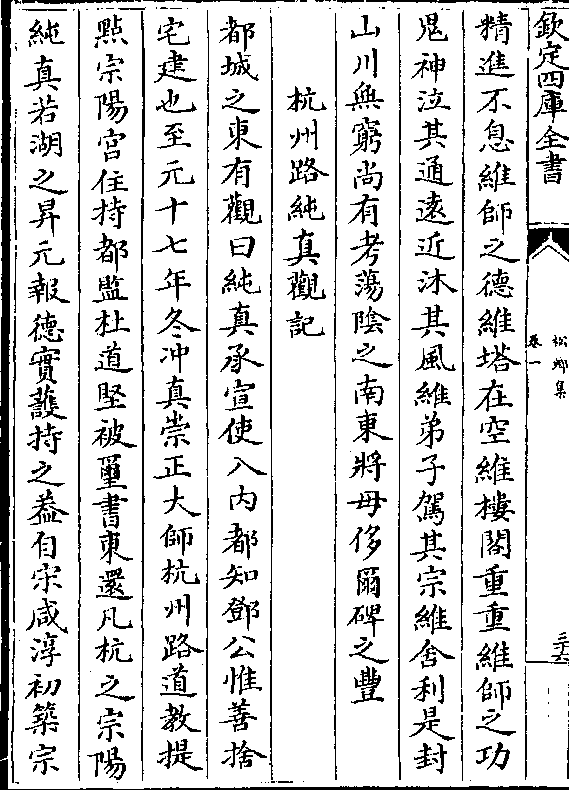 欽定四庫全書
松鄉集
卷一
三六
精進不息維師之德維塔在空維樓閣重重維師之功
鬼神泣其通遠近沐其風維弟子駕其宗維舍利是封
山川無窮尚有考蕩陰之南東將毋侈爾碑之豐
杭州路純真觀記
都城之東有觀曰純真承宣使入内都知鄧公惟善捨
宅建也至元十七年冬冲真崇正大師杭州路道教提
㸃宗陽宫住持都監杜道堅被璽書東還凡杭之宗陽
純真若湖之昇元報德實䕶持之葢自宋咸淳初築宗